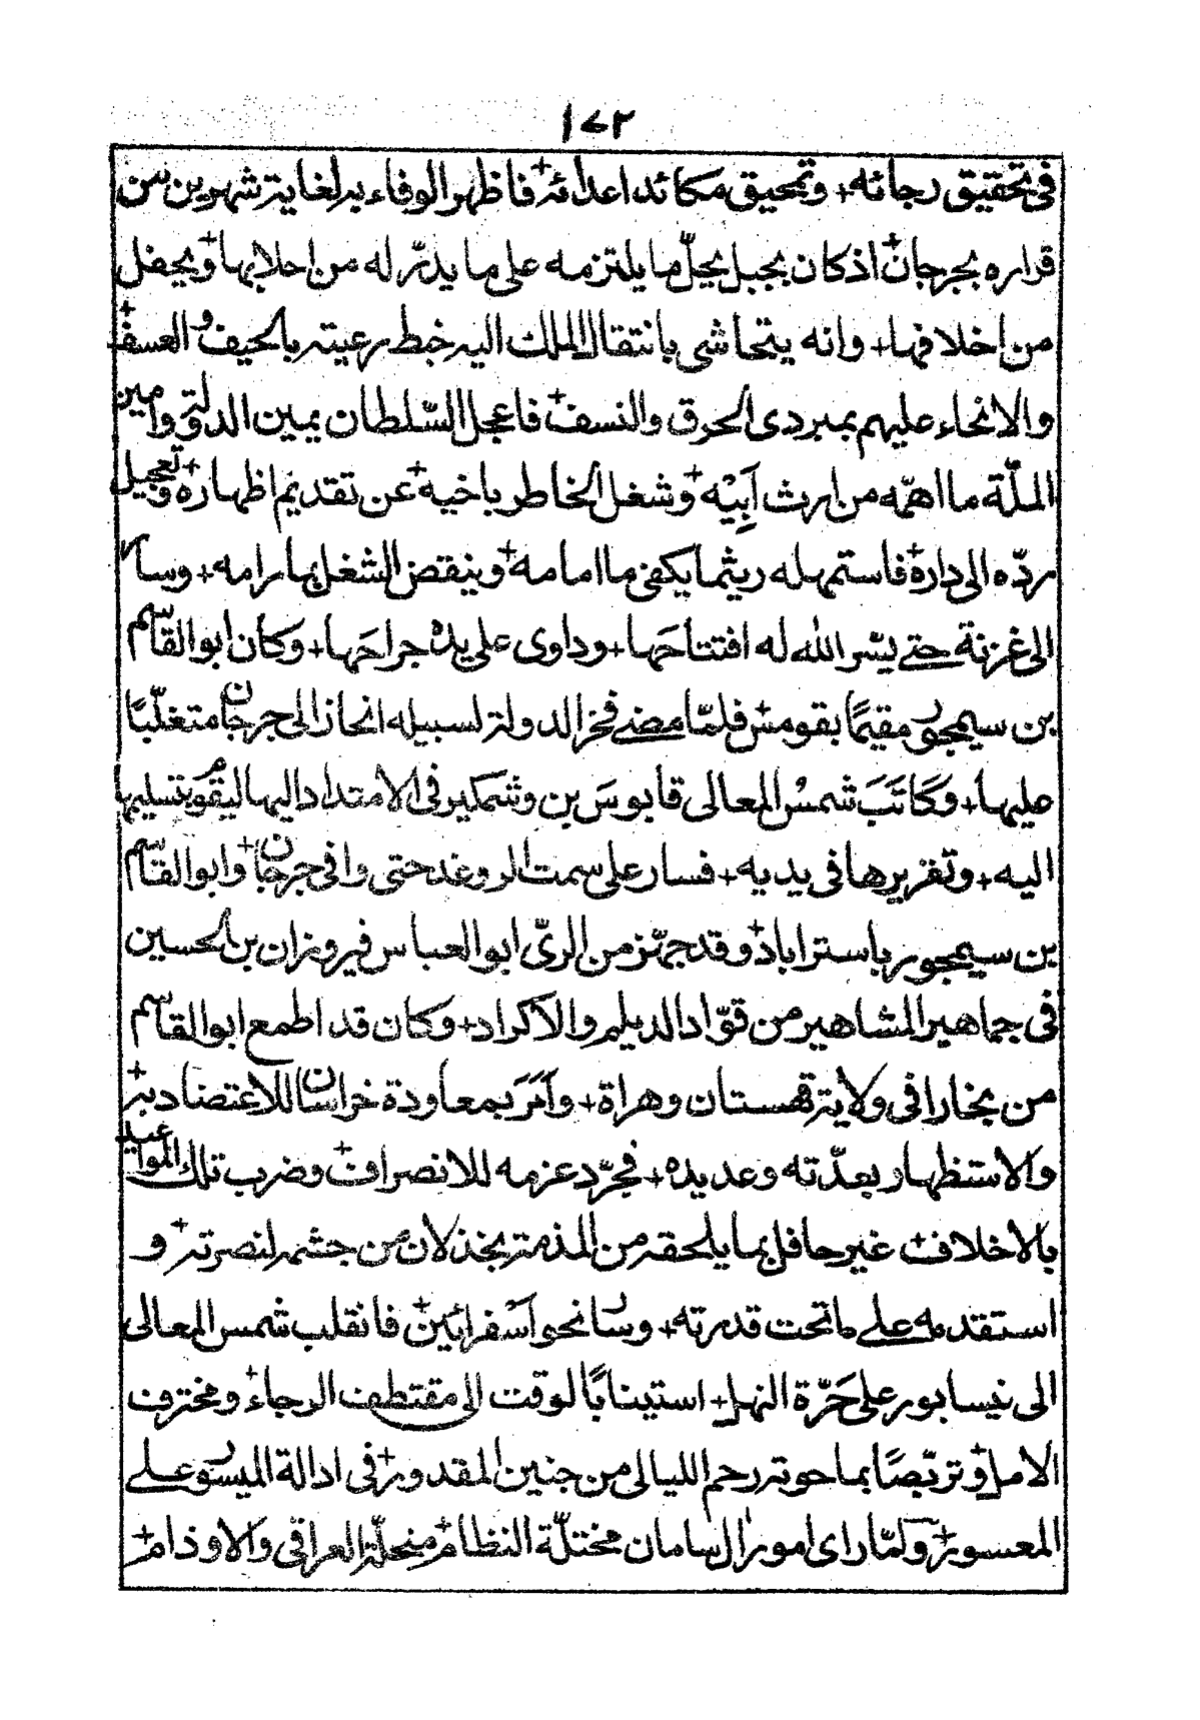 ١٧٢
في تحقيق رجائه+ وتمحيق مكائد اعدائه+ فاظهر الوفاء به لغاية شهرين من
قراره بجرجان+ اذ كان بجبل بجيل ما يلتزمه على ما يدرّ له من احلابها+ ويحفل
من اخلافها+ وانه يتحاشى بانتقال الملك اليه خبط رعيته بالحيف و العسف+
والانحاء عليهم بمبردى الحرق والنسف+ فاعجل السّلطان يمين الدولة وامين
الملّة ما اهمّه من ارث اَبِيْه+ وشغل الخاطر باخيه+ عن تقديم اظهاره+ وتعجيل
ردّه الى داره+ فاستمهله ريثما يكفى ما امامه+ وينقض الشغل بها رامه+ وسار
الى غزنة حتى يسّر الله له افتتاحَها+ وداوى على يده جراحَها+ وكان ابو القاسم
بن سيمجور مقيمًا بقومش+ فلمّا مضى فخر الدولة لسبيله انحاز الى جرجان متغلّبًا
عليها+ وكَاتَبَ شمسْ المعالى قابوسَ بن وشمكير فى الامتداد اليها ليقوم بتسليمها
اليه+ وتقريرها فى يديه+ فسار على سمت الروغد حتى وافى جرجان+ وابو القاسم
بن سيمجور باستراباد+ وقد جهّز من الرىّ ابو العباس فيروزان بن الحسين
فى جماهير المشاهير من قوّاد الديلم والاكراد+ وكان قد اطمع ابو القاسم
من بخارا فى ولاية قهستان وهراة+ واُمَرَ بمعاودة خراسان للاعتضاد به+
والاستظهار بعدّته وعديده+ فجرّد عزمه للانصراف+ وضرب تلك المواعيد
بالاخلاف+ غير حافل بما يلحقه من المذمة بخذلان من جشمه لنصرته+ و
استقدمه على ما تحت قدرته+ وسار نحو اَسْفرائين+ فانقلب شمس المعالى
الى نيسابور على حَرّة النهل+ استينابًا لوقت الى مقتطف الرجاء+ ومخترف
الامل+ وتربّصًا بما حوته رحم الليالى من جنين المقدور+ فى ادالة الميسور على
المعسور+ ولمّا راى امور ال سامان مختلّة النظام+ منحلّة العراقى والاوذام+